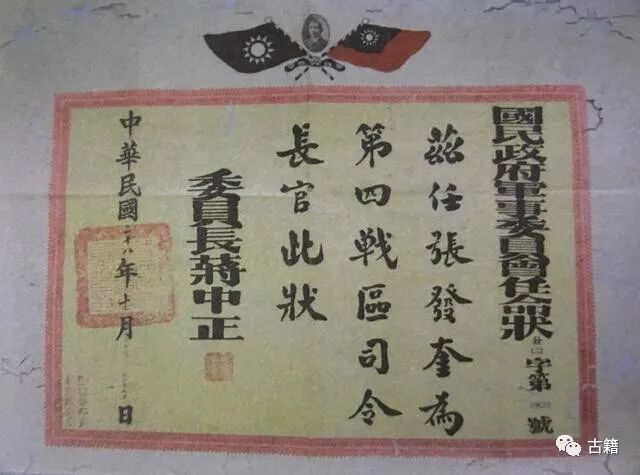 國民政府軍事委員會任命狀
字第 號
茲任張發奎為
第四戰區司令
長官此狀
委員長蔣中正
中華民國二十八年十一月 日
古籍